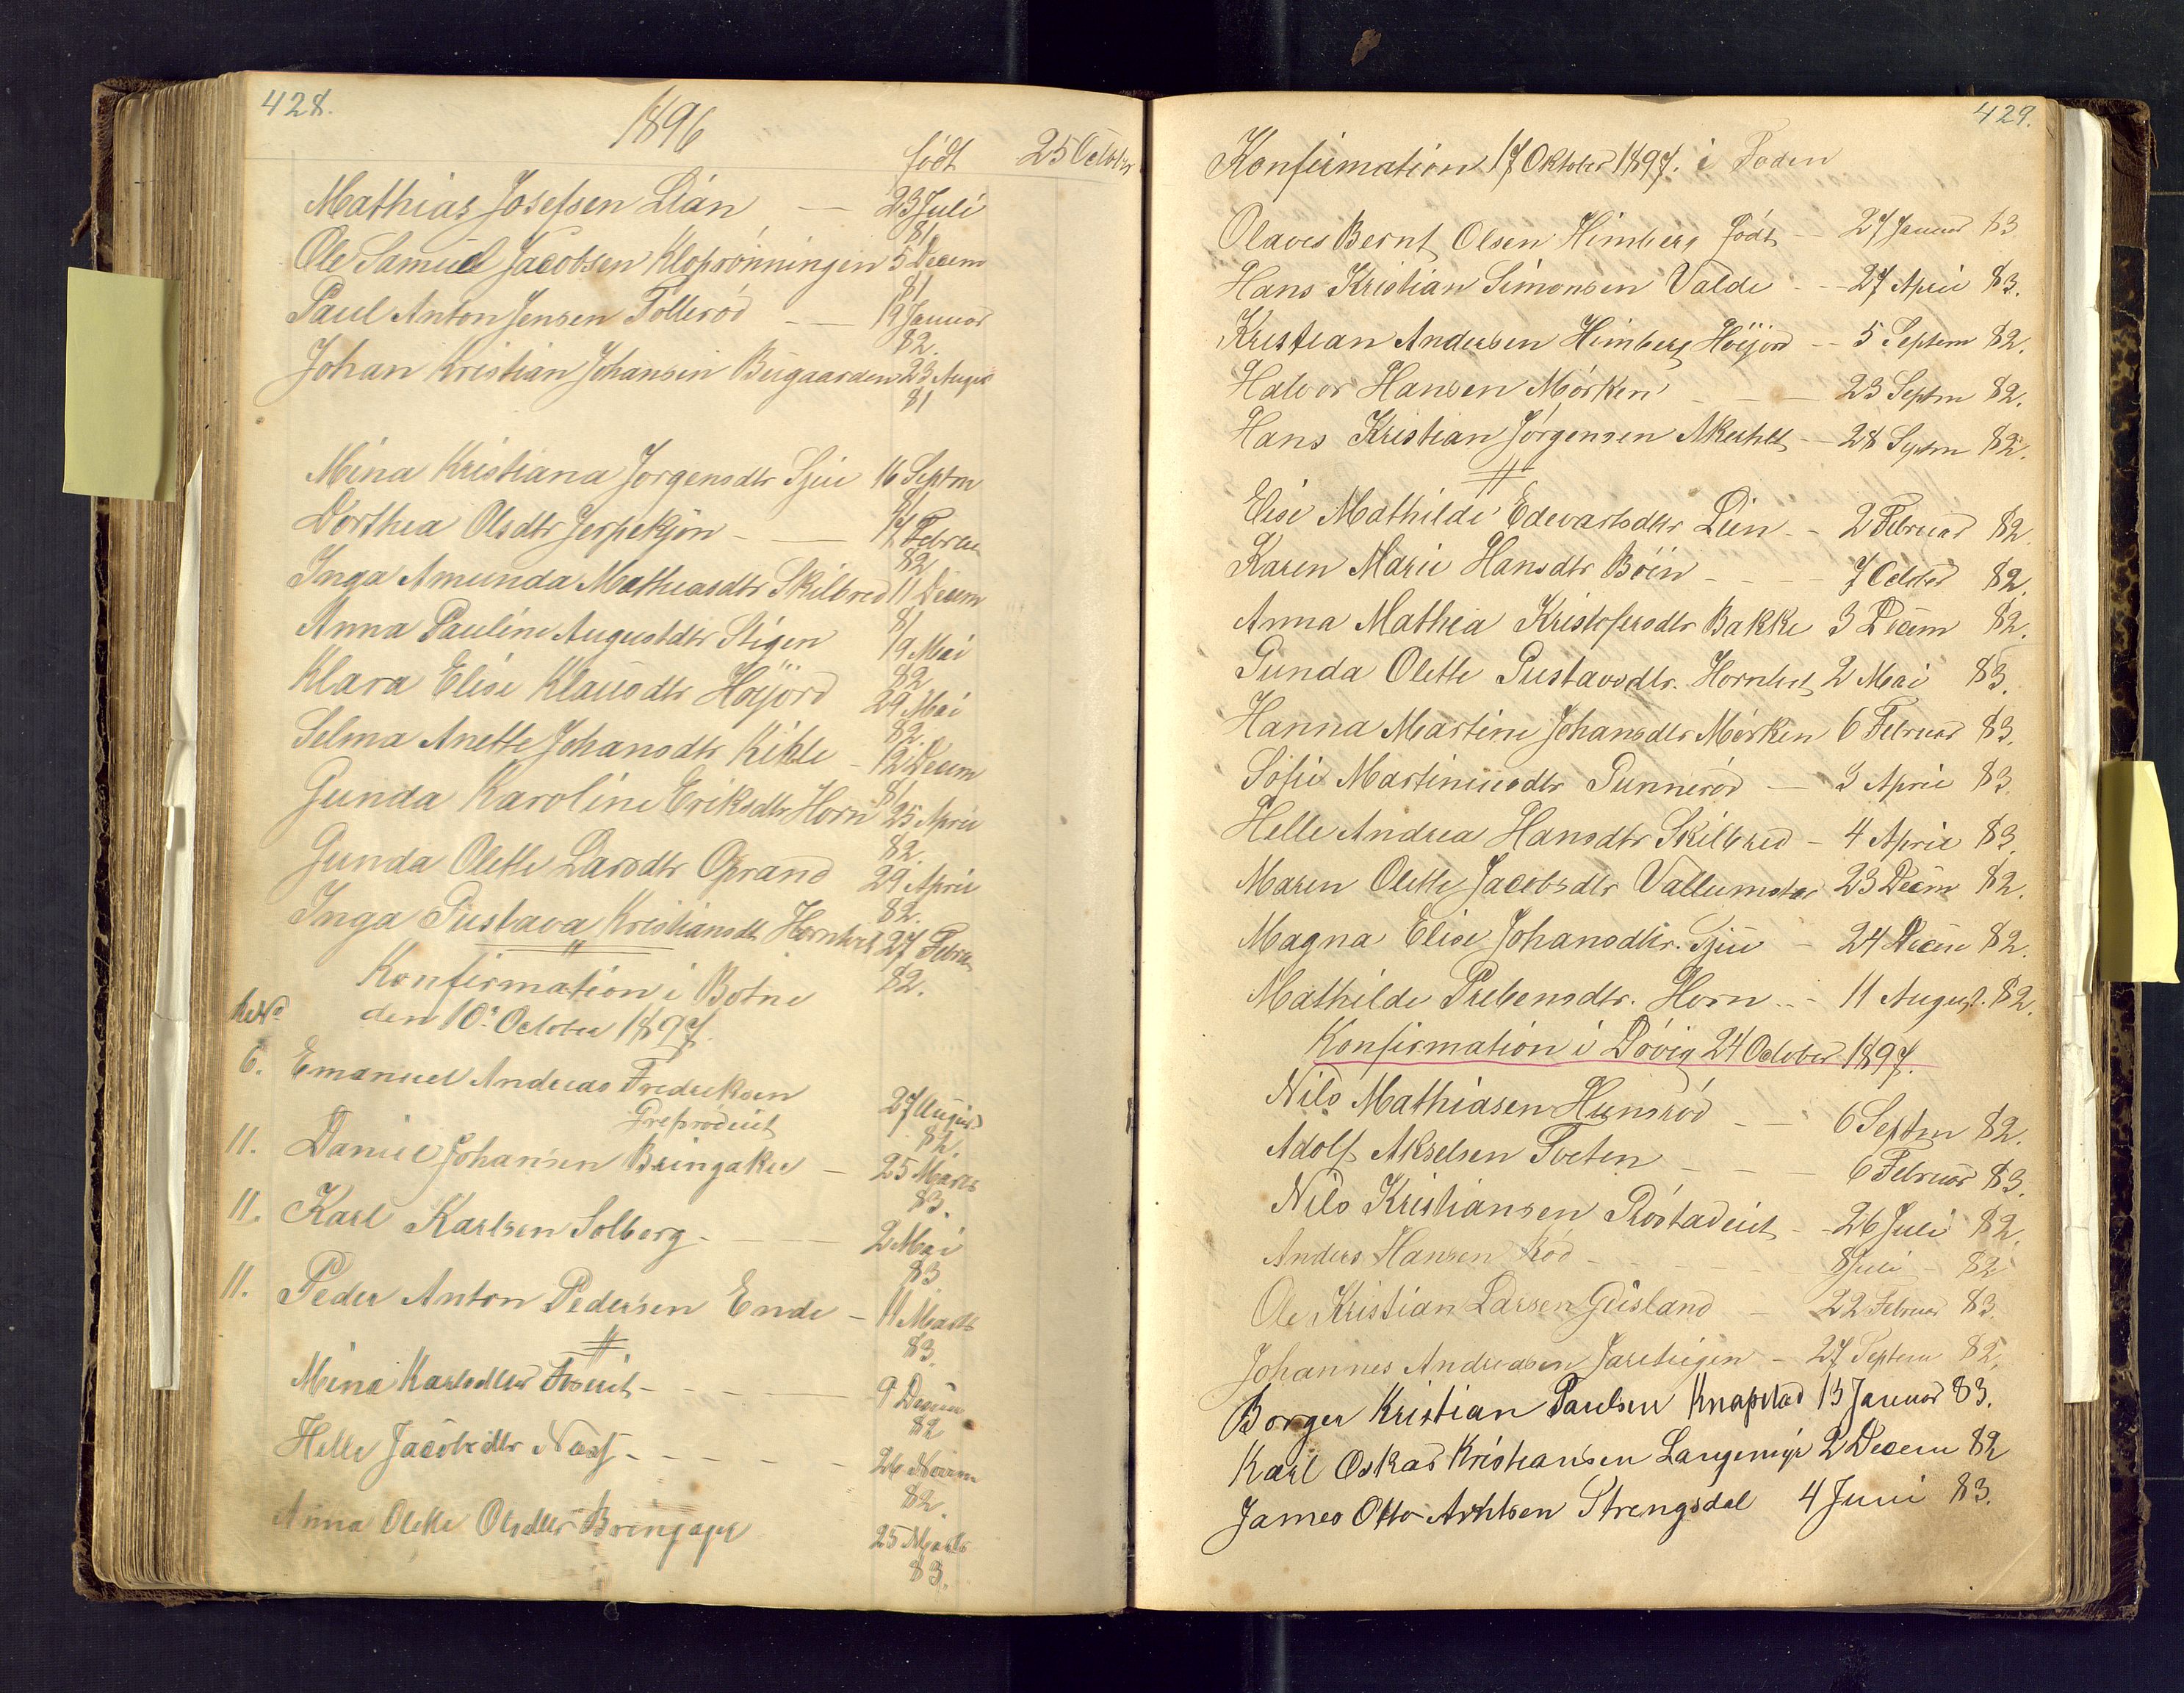 428.
1896
født 25 October
Mathias Josefsen Lian — 23 Juli
81
Ole Samuel Jacobsen Kloprønningen 5 Decem
81
Paul Anton Jensen Tollerød — 19 Januar
82.
Johan Kristian Johansen Bügaarden 23 Augus
81
Mina Kristiana Jørgensdtr Sjue 16 Septm
81
Dorthea Olsdtr Jerpekjøn — 14 Februa
82
Inga Amunda Mathiasdtr Skilbred 11 Decem
81
Anna Pauline Augustdtr Stigen 19 Mai
82
Klara Elise Klausdtr Høijord 29 Mai
82.
Selma Anette Johansdtr Kihle — 12 Decem
81
Gunda Karoline Eriksdtr Horn 25 April
82.
Gunda Olette Larsdtr Oprand 29 April
82.
Inga Gustava Kristiansdt Hornt 27 Februa
82.
Konfirmation i Botne
den 10de October 1897.
6. Emanuel Andreas Fredriksen
Greprødeiet 27 August
82.
11. Daniel Johansen Bringaker — 25 Marts
83.
11. Karl Karlsen Solberg — 2 Mai
83
11. Peder Anton Pedersen Ende — 11 Marts
83.
Mina Karlsdtr — 9 Decem
82
Helle Jacobsdtr Næss — 26 Novem
82.
Anna Olette Olsdtr 25 Marts
83.
429.
Konfirmation 17 Oktober 1897. i Foden
Olaves Bernt Olsen Himberg født — 27 Januar 83
Hans Kristian Simonsen Valde — 27 April 83.
Kristian Andersen Himberg Høijord — 5 Septem 82.
Halvor Hansen Mørken — 23 Septm 82.
Hans Kristian Jørgensen — 28 Septm 82.
Elise Mathilde Edevartsdtr Lien — 2 Februar 82.
Karen Marie Hansdtr Bøen — 7 October 82.
Anna Mathea Kristofersdtr Bakke 3 Decem 82.
Gunda Olette Gustavsdtr. Horntvet 2 Mai 83.
Hanna Martine Johansdtr Mørken 6 Februar 83.
Sofie Martiniusdtr Gunnerød — 3 April 83.
Helle Andrea Hansdtr Skilbred — 4 April 83.
Maren Olette Jacobsdtr Vallumstør 23 Decm 82.
Magna Elise Johansdtr. Sjue — 24 Decem 82.
Mathilde Prebensdtr. Horn — 11 August. 82.
Konfirmation i Døvig 24 October 1897.
Nils Mathiasen Hunsrød — 6 Septm 82.
Adolf Akselsen Tveten — 6 Februar 83.
Nils Kristiansen Røstadeiet — 26 Juli 82.
Anders Hansen Rød — 8 Juli — 82
Ole Kristian Larsen Gusland — 22 Februar 83.
Johannes Andreasen — 27 Septem 82.
Borger Kristian Paulsen Knapstad 13 Januar 83.
Karl Oskar Kristiansen Langemyr 2 Decem 82
James Otto Arntsen Strengsdal 4 Juni 83.